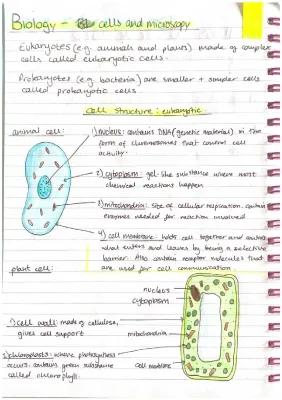 Biology - cells and microscopy
Eukaryotes (e.g. animals and plants) made of complex
cells called eukaryotic cells.
Prokaryotes (e.g. bacteria) are smaller + simpler cells
called prokaryotic cells
Cell Structure: eukaryotic.
animal cell:
1) nucleus: contains DNA (genetic material) in the
form of chromosomes that control cell
activity.
2) cytoplasm: gel-like substance where most
chemical reactions happen
3) mitochondria: site of cellular respiration, contain
enzymes needed for reaction involved
4) cell membrane: holds cell together and
what enters and leaves by being a selective
barrier. Also contain receptor molecules that
are used for cell communication.
plant cell:
nucleus
cytoplasm
1) cell wall: made of cellulose,
gives cell support
mitochondria
chloroplasts: where photosynthesis
occurs, contains green substance
called chlorophyll.
cell membrane